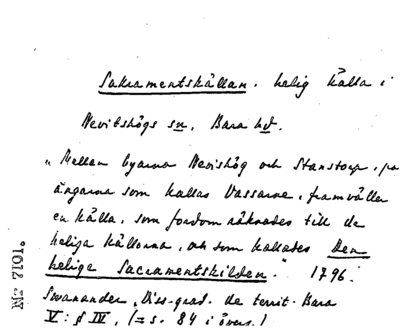 Sakramentskällan. helig källa i
Nevitshögs sn, Bara hd.
"Mellan byarna Nevishög och Stanstorp, på
ängarna som kallas Vassarne, framväller
en källa, som fordom räknades till de
heliga källorna, och som kallades Den
helige Sacramentskilden." 1796.
Swanander, Diss. grad. de territ. Bara
V: § IV, (= s. 84 i övers.)
No 7101.